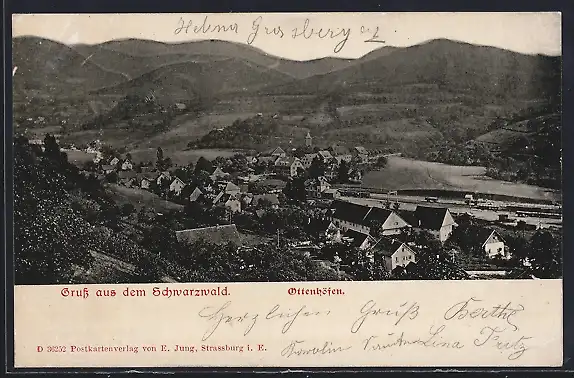 Helena Grossberger
Gruß aus dem Schwarzwald.
Ottenhöfen.
Herzlichen Gruß Berthe
Karolin Lina Fritz
D 36252 Postkartenverlag von E. Jung, Strassburg i. E.